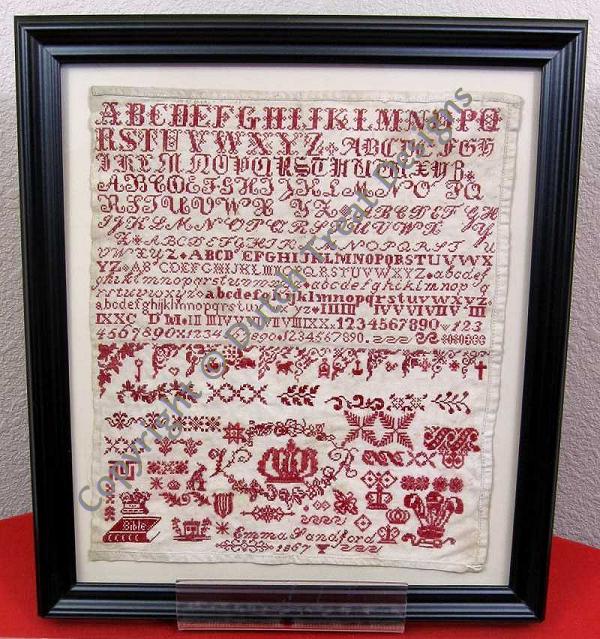 ABCDEFGHIJKLMNOPQ
RSTUVWXYZ ABCDEFGH
IJKLMNOPQRSTUVWXYZ
ABCDEFGHIJKLMNOPQ
RSTUVWXYZ ABCDEFGH
IJKLMNOPQRSTUVWXY
Z ABCDEFGHIJKLMNOPQRSTU
VWXYZ ABCDEFGHIJKLMNOPQRSTUVWX
YZ ABCDEFGHIJKLMNOPQRSTUVWXYZ abcdef
ghijklmnopqrstuvwxyz abcdefghijklmnopq
rstuvwxyz abcdefghijklmnopqrstuvwxyz
abcdefghijklmnopqrstuvwxyz
1234567890 123
4567890 1234567890 1234567890
Bible
Emma Sandford
1867
Copyright © Dutch Treat Designs